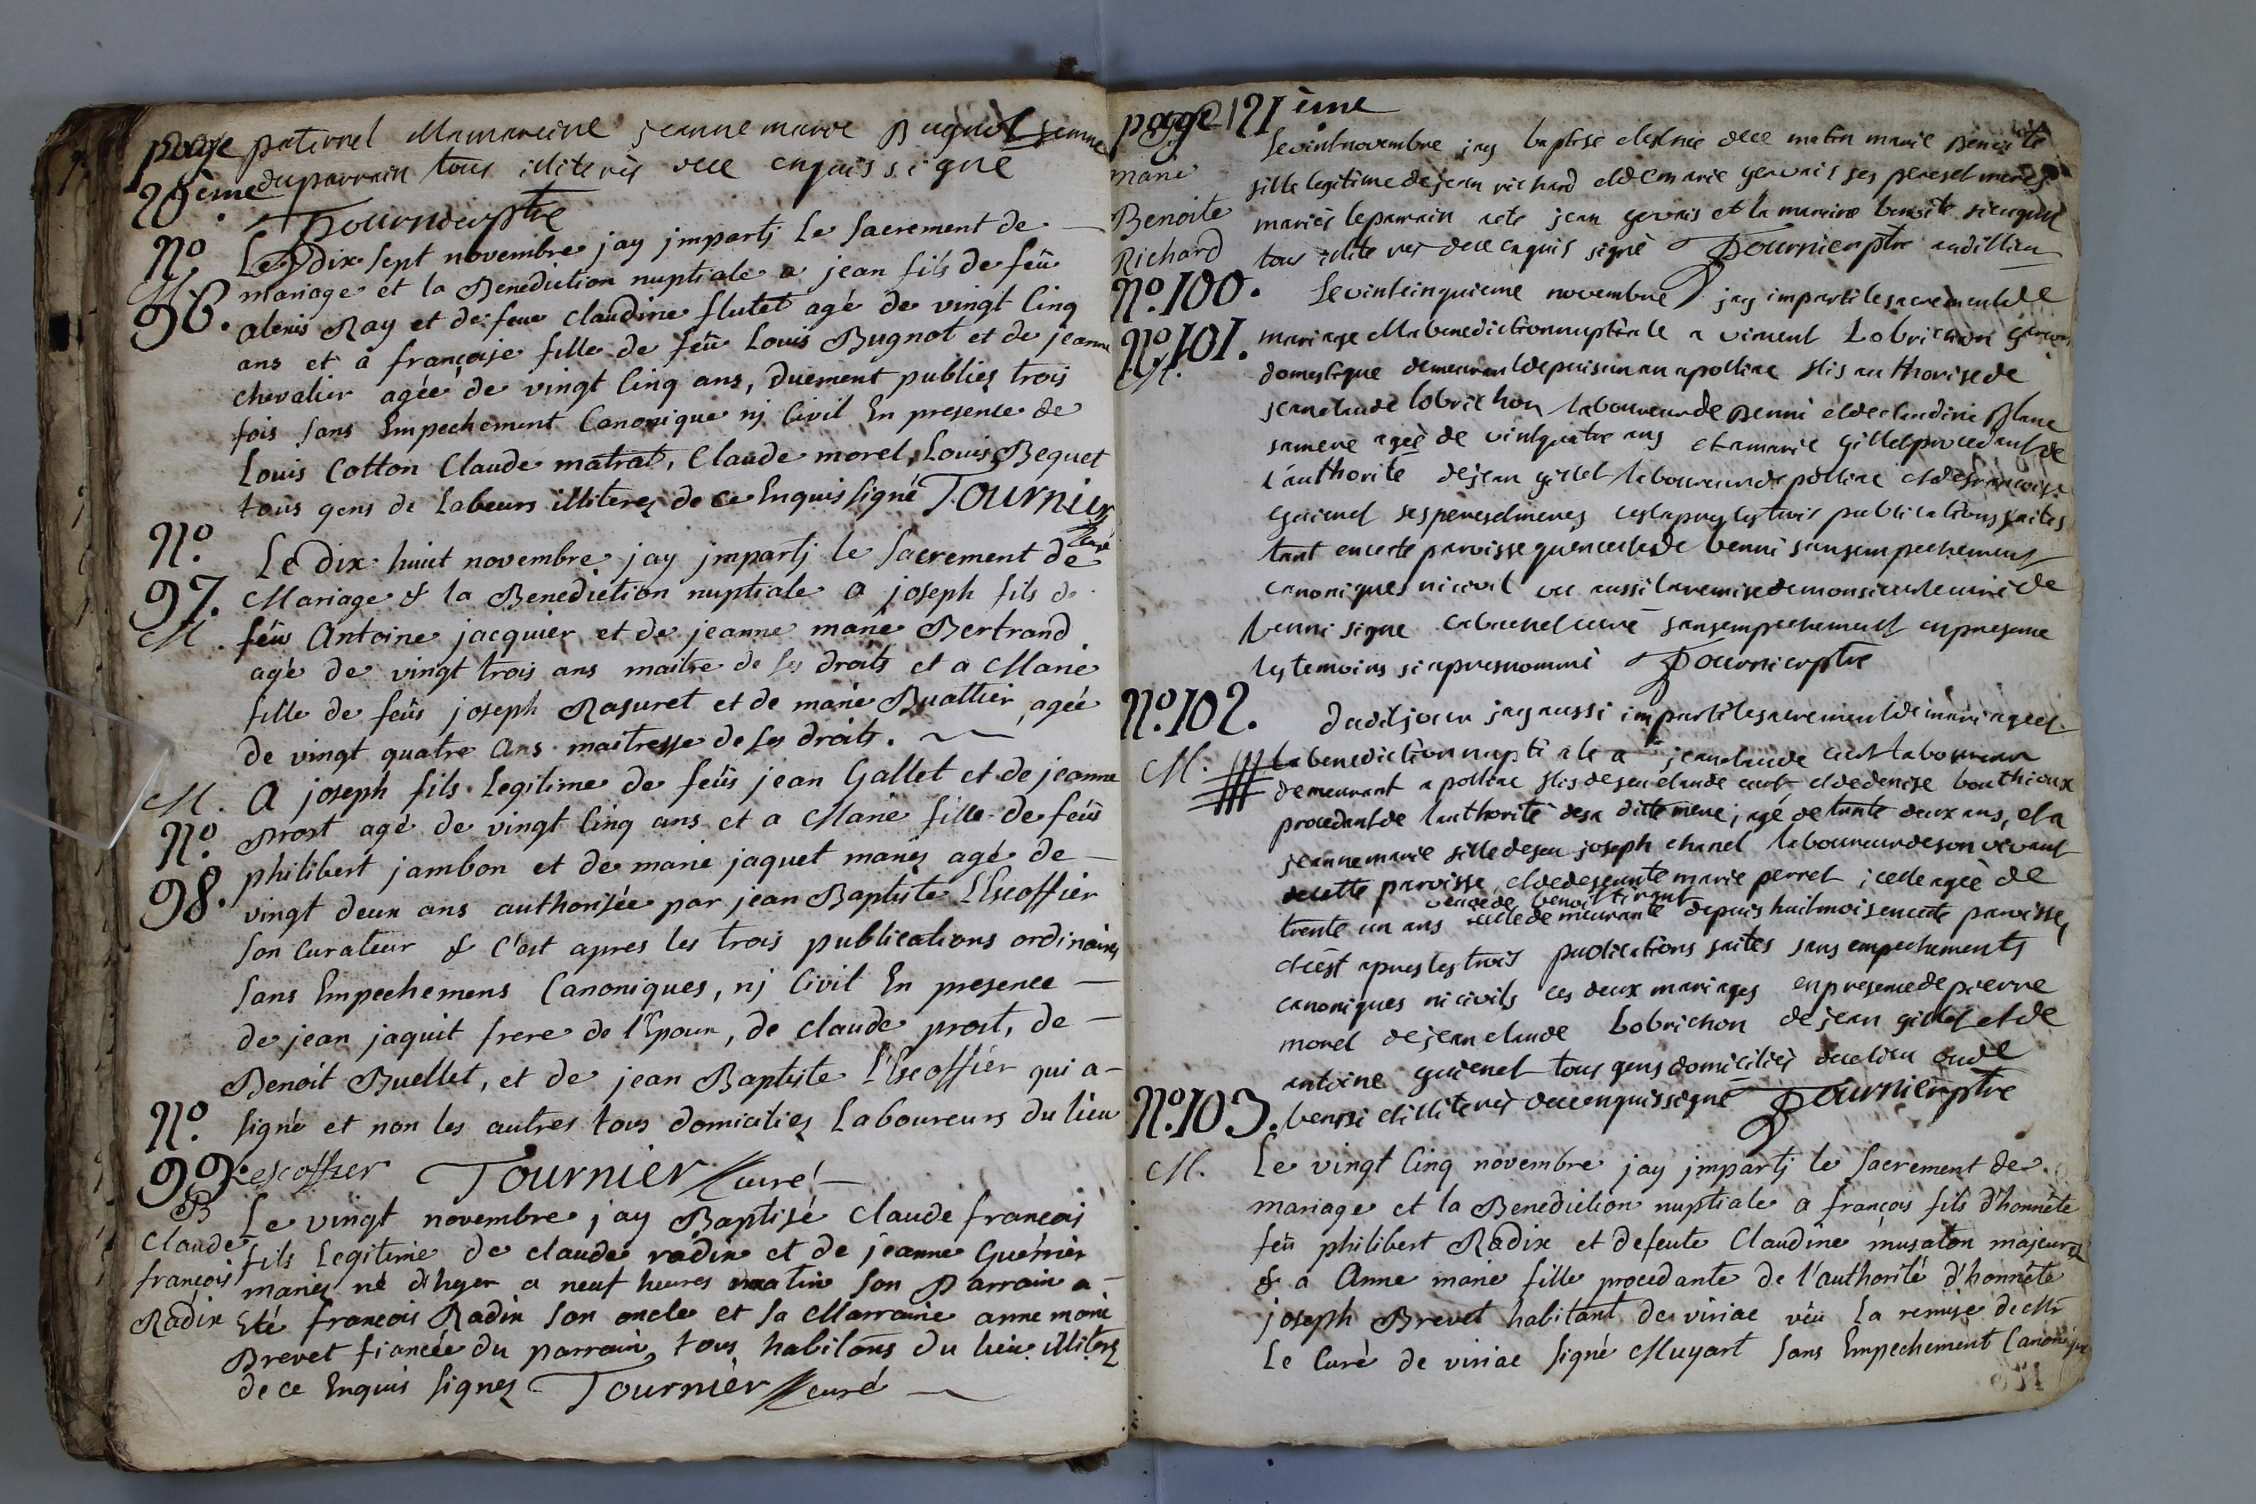 page paternel et la marreine jeanne marie Bugnot femme
20ème du parrain tous illiterès de ce enquis signé
Tournier ptre
No 96. M. Le dix sept novembre jay imparti le Sacrement de
mariage et la Benediction nuptiale a jean fils de feû
alexis Ray et de feue claudine flutet agé de vingt cinq
ans et a françoise fille de feû Louis Bugnot et de jeanne
chevalier agée de vingt Cinq ans, duement publies trois
fois sans Empechement Canonique nj Civil En presence de
Louis Cotton Claude matrat, Claude morel, Louis Bequet
tous gens de Labeurs illiterez de ce Enquis signé Tournier
curé
No. 97. M. Le dix huit novembre jay jmpartj le Sacrement de
Mariage & la Benediction nuptiale a joseph fils de
feû Antoine jacquier et de jeanne marie Bertrand
agé de vingt trois ans maitre de ses droits et a Marie
fille de feûs joseph Rasuret et de marie Buattier agée
de vingt quatre ans maitresse de ses droits.
M. No 98. A joseph fils Legitime de feûs jean Gallet et de jeanne
Prost agé de vingt Cinq ans et a Marie fille de feûs
philibert jambon et de marie jaquet mariés agé de
vingt deux ans authorisée par jean Baptiste L'Escoffier
son Curateur & c'est apres les trois publications ordinaires
sans Empechemens Canoniques, nj Civil En presence
de jean jaquit frere de l'Epoux, de claude prost, de
Benoit Buellet, et de jean Baptiste l'Escoffier qui a
signé et non les autres tous domiciliez Laboureurs du lieu
Lescoffier Tournier curé
No. 99. B Claude françois Radix
Le vingt novembre jay Baptisé Claude françois
fils Legitime de claude radix et de jeanne Guerrier
mariez né d'hyer a neuf heures matin son Parrain a
Eté françois Radix son oncle et sa Marraine anne marie
Brevet fiancée du parrain, tous habitans du lieu illiterez
de ce Enquis signez Tournier curé
page 21ème
marie Benoite Richard
Le vint novembre jay baptise et est née dece matin marie Benoite
fille legitime de jean richard et de marie gervais ses pere et meres
mariés le parrain a eté jean gervais et la mareine benoite
tous illiterès de ce enquis signé Tournier ptre
No. 100.
No. 101. M. Le vintcinquieme novembre jay imparti le sacrement de
mariage et la benediction nuptiale a viment Lobrichon garçon
domestique demeurant depuis un an a polliac fils authorisé de
jean claude lobrichon laboureur de Benni et de claudine Blanc
sa mere agée de vintquatre ans et a marie gillet procedant de
l'authorité de jean gillet laboureur de polliac et de françoise
guienet ses pere et meres cest apres les trois publications faites
tant en cette paroisse quen celle de benni sans empechement
canoniques ni civil vu aussi la remise de monsieur le curé de
benni signe curé sans empechement en presence
les temoins si apres nommé Tournier ptre
No. 102. M. Dudit jour jay aussi imparti le sacrement de mariage et
la benediction nuptiale a jean claude laboureur
demeurant a polliac fils de feu claude et de denise bouthioux
procedant de lauthorité de sa ditte mere, agé de trente deux ans, et a
jeanne marie fille de feu joseph chanel laboureur de son vivant
de cette paroisse et de defeunte marie perret icelle agée de
veuve de benoit
trente un ans demeurante depuis huit mois en cette paroisse,
et cest apres les trois publications faites sans empechements
canoniques ni civils ces deux mariages en presence de pierre
morel de jean claude Lobrichon de jean gillet et de
antoine guienet tous gens domiciliés de ce lieu ou de
benni et illiterés de ce enquis signé Tournier ptre
No. 103. M. Le vingt Cinq novembre jay jmpartj le Sacrement de
mariage et la Benediction nuptiale a françois fils d'honnête
feû philibert Radix et defeute Claudine musaton majeurs
& a Anne marie fille procedante de l'authorité d'honnête
joseph Brevet habitant de viriac vêu la remise de Mr
Le Curé de viriac signé Muyart sans Empechement Canonique